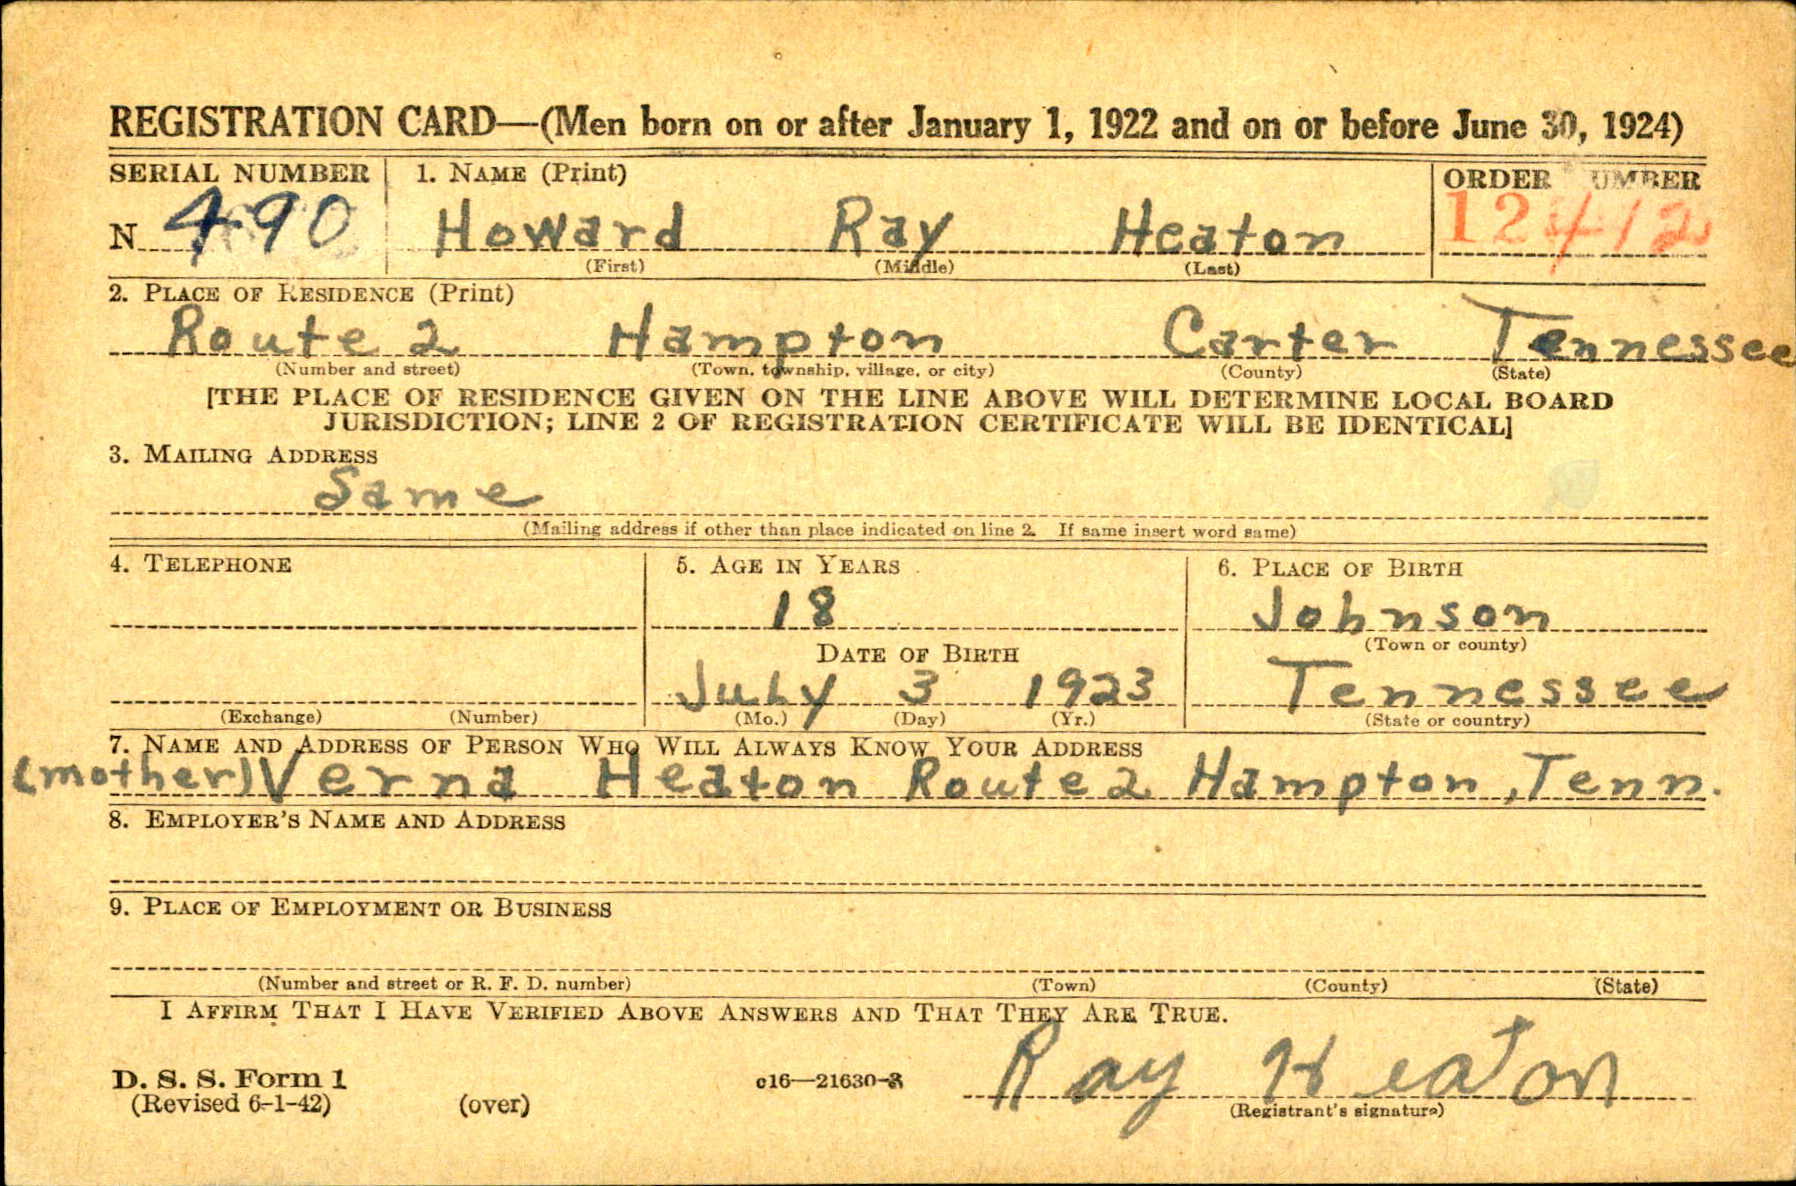 REGISTRATION CARD—(Men born on or after January 1, 1922 and on or before June 30, 1924)
SERIAL NUMBER 1. NAME (Print) ORDER NUMBER
N 490 Howard Ray Heaton 12412
(First) (Middle) (Last)
2. PLACE OF RESIDENCE (Print)
Route 2 Hampton Carter Tennessee
(Number and street) (Town, township, village, or city) (County) (State)
[THE PLACE OF RESIDENCE GIVEN ON THE LINE ABOVE WILL DETERMINE LOCAL BOARD
JURISDICTION; LINE 2 OF REGISTRATION CERTIFICATE WILL BE IDENTICAL]
3. MAILING ADDRESS
Same
(Mailing address if other than place indicated on line 2. If same insert word same)
4. TELEPHONE 5. AGE IN YEARS 6. PLACE OF BIRTH
18 Johnson
(Town or county)
DATE OF BIRTH
July 3 1923 Tennessee
(Exchange) (Number) (Mo.) (Day) (Yr.) (State or country)
7. NAME AND ADDRESS OF PERSON WHO WILL ALWAYS KNOW YOUR ADDRESS
(mother) Verna Heaton Route 2 Hampton, Tenn.
8. EMPLOYER'S NAME AND ADDRESS
9. PLACE OF EMPLOYMENT OR BUSINESS
(Number and street or R. F. D. number) (Town) (County) (State)
I AFFIRM THAT I HAVE VERIFIED ABOVE ANSWERS AND THAT THEY ARE TRUE.
Ray Heaton
D. S. S. Form 1 c16—21630-3
(Revised 6-1-42) (over) (Registrant's signature)